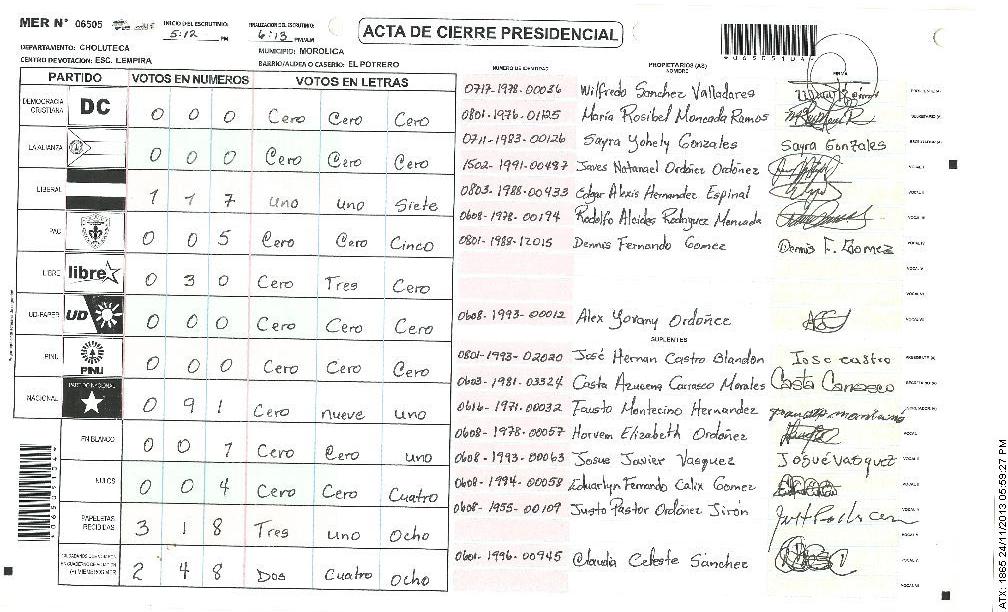 MER N° 06505
INICIO DEL ESCRUTINIO: 5:12 PM
FINALIZACION DEL ESCRUTINIO: 6:13 PM/A.M
ACTA DE CIERRE PRESIDENCIAL
DEPARTAMENTO: CHOLUTECA
MUNICIPIO: MOROLICA
CENTRO DE VOTACION: ESC. LEMPIRA
BARRIO/ALDEA O CASERIO: EL POTRERO
PARTIDO VOTOS EN NUMEROS VOTOS EN LETRAS
DEMOCRACIA CRISTIANA DC 0 0 0 Cero Cero Cero
LA ALIANZA 0 0 0 Cero Cero Cero
LIBERAL 1 1 7 uno uno Siete
PAC 0 0 5 Cero Cero Cinco
LIBRE libre 0 3 0 Cero Tres Cero
UD-FAPER UD 0 0 0 Cero Cero Cero
PINU PINU 0 0 0 Cero Cero Cero
NACIONAL PARTIDO NACIONAL 0 9 1 Cero nueve uno
EN BLANCO 0 0 1 Cero Cero uno
NULOS 0 0 4 Cero Cero Cuatro
PAPELETAS RECIBIDAS 3 1 8 Tres uno Ocho
2 4 8 Dos Cuatro Ocho
NUMERO DE IDENTIDAD PROPIETARIOS (AS) NOMBRE FIRMA
0717-1978-00036 Wilfredo Sanchez Valladares
0801-1976-01125 María Rosibel Moncada Ramos
0711-1983-00126 Sayra Yohely Gonzales Sayra Gonzales
1502-1991-00487 Javes Natanael Ordoñez Ordoñez
0803-1988-00433 Edgar Alexis Hernandez Espinal
0608-1978-00194 Rodolfo Alcides Rodriguez Moncada
0801-1988-12015 Dennis Fernando Gomez Dennis F. Gomez
0608-1993-00012 Alex Yovany Ordoñez
SUPLENTES
0801-1993-02020 José Hernan Castro Blandon Jose castro
0603-1981-03324 Casta Azucena Carrasco Morales Casta Carrasco
0616-1971-00032 Fausto Montecino Hernandez
0608-1978-00057 Horvem Elizabeth Ordoñez
0608-1993-00063 Josue Javier Vasquez Josué Vasquez
0608-1994-00058 Eduarlyn Fernando Calix Gomez
0608-1955-00109 Justo Pastor Ordoñez Jirón
0601-1996-00945 Claudia Celeste Sánchez
ATX: 1865 24/11/2013 05:59:27 PM